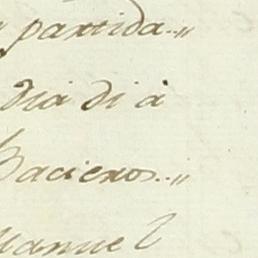 partida..,,
dia di à
Bacieros..,,
Manuel